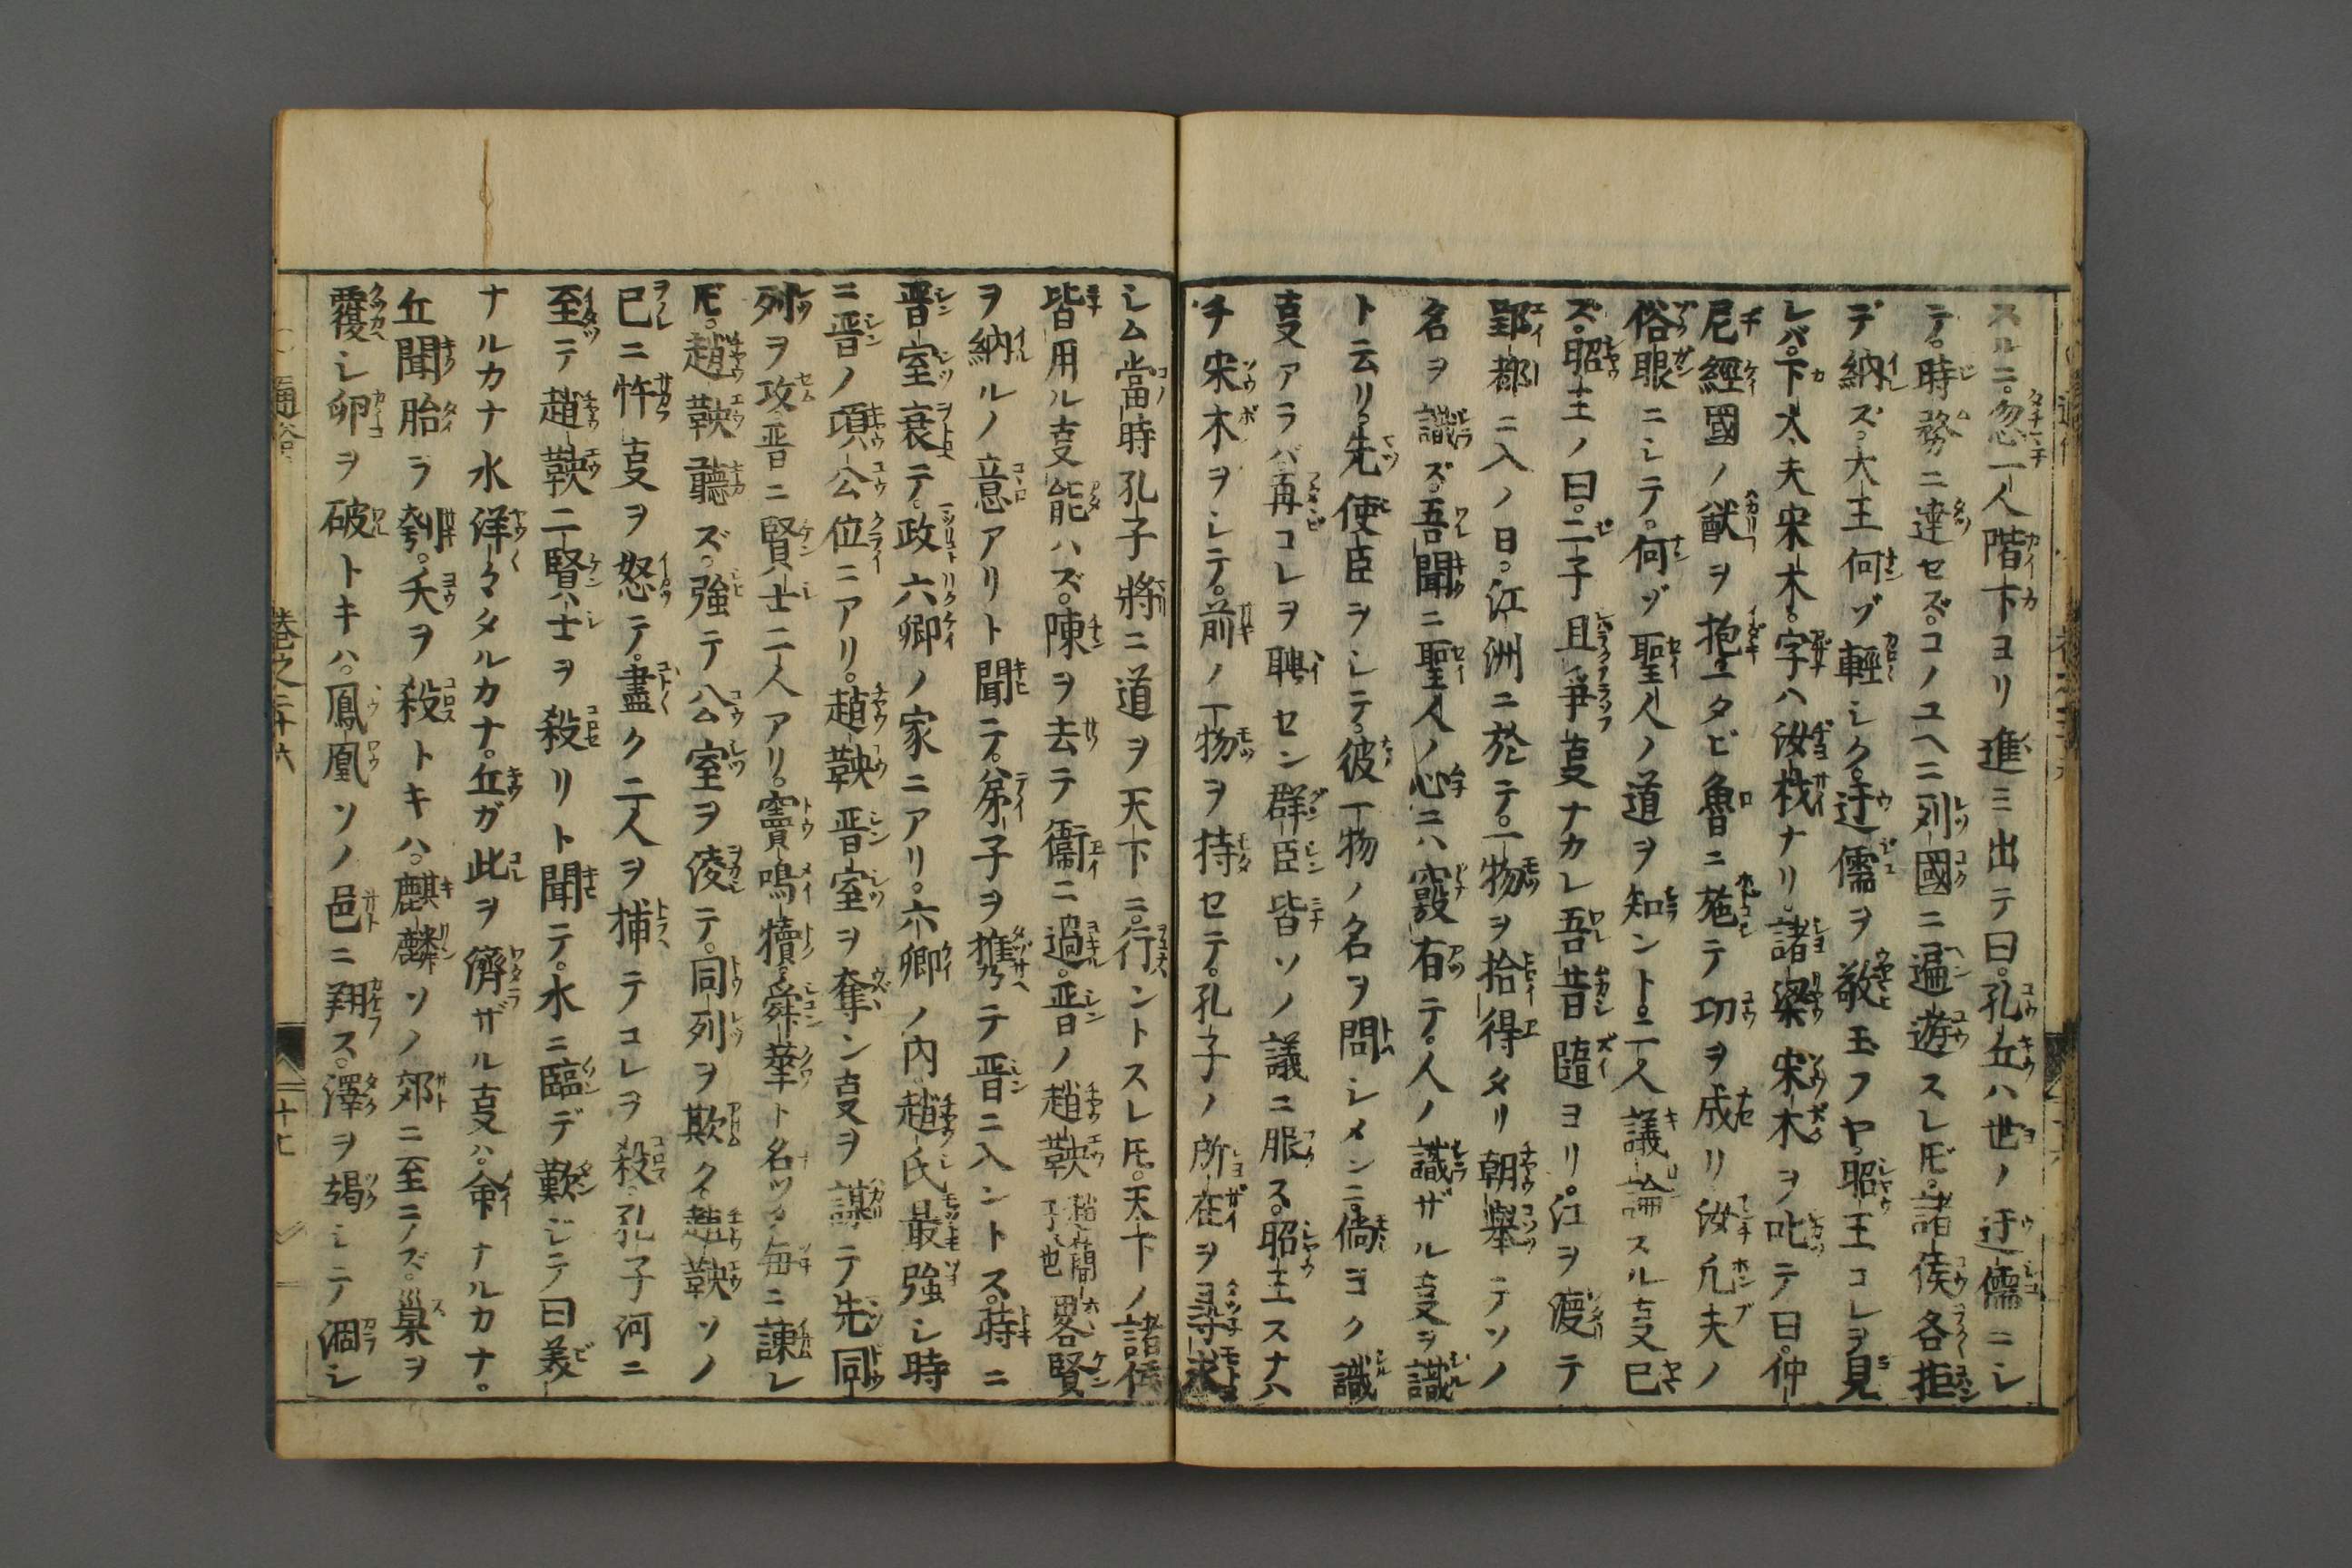 スルニ。忽一人階下ヨリ進ミ出テ曰。孔丘ハ世ノ迂儒ニシ
テ。時務ニ達セズ。コノユヘニ列國ニ遍遊スレ𪜈。諸侯各拒
デ納ズ。大王何ゾ輕シク。迂儒ヲ敬玉フヤ。昭王コレヲ見
レバ。下大夫宋木。字ハ汝栈ナリ。諸梁宋木ヲ叱テ曰。仲
尼經國ノ猷ヲ抱一タビ魯ニ施テ功ヲ成リ汝凢夫ノ
俗眼ニシテ。何ゾ聖人ノ道ヲ知ント。二人議論スル叓已
ズ。昭王ノ曰。二子且爭叓ナカレ吾昔隨ヨリ。江ヲ渡テ
郢都ニ入ノ日。江洲ニ於テ。一物ヲ拾得タリ朝舉テソノ
名ヲ識ズ。吾聞ニ聖人ノ心ニハ竅有テ。人ノ識ザル叓ヲ識
ト云リ。先使臣ヲシテ。彼一物ノ名ヲ問シメンニ。倘ヨク識
叓アラバ再コレヲ聘セン群臣皆ソノ議ニ服ス。昭王スナハ
チ宋木ヲシテ。前ノ一物ヲ持セテ。孔子ノ所在ヲ尋求
シム當時孔子將ニ道ヲ天下ニ。行ントスレ𪜈。天下ノ諸侯
皆用ル叓能ハズ。陳ヲ去テ衞ニ過。晋ノ趙鞅趙簡子也畧賢
ヲ納ルノ意アリト聞テ。弟子ヲ携テ晋ニ入ントス。時ニ
晋室衰テ。政六卿ノ家ニアリ。六卿ノ内趙氏最強シ時
ニ晋ノ頃公位ニアリ。趙鞅晋室ヲ奪ン叓ヲ謀テ先同
列ヲ攻晋ニ賢士二人アリ。竇鳴犢。舜華ト名ヅク毎ニ諫レ
𪜈。趙鞅聽ズ。強テ公室ヲ凌テ。同列ヲ欺ク。趙鞅ソノ
已ニ忤叓ヲ怒テ。盡ク二人ヲ捕テコレヲ殺。孔子河ニ
至テ趙鞅二賢士ヲ殺リト聞テ。水ニ臨デ歎ジテ曰美
ナルカナ水洋々タルカナ。丘ガ此ヲ濟ザル叓ハ。命ナルカナ。
丘聞胎ヲ刳。夭ヲ殺トキハ。麒麟ソノ郊ニ至ニノズ。巢ヲ
覆シ卵ヲ破トキハ。鳳凰ソノ邑ニ翔ス。澤ヲ竭シテ涸シ
通俗
卷之三十六
二十七